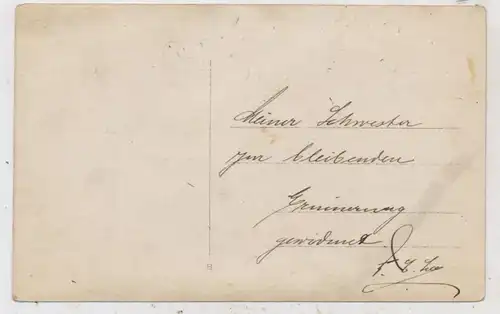 Meiner Schwester
zur bleibenden
Erinnerung
gewidmet.